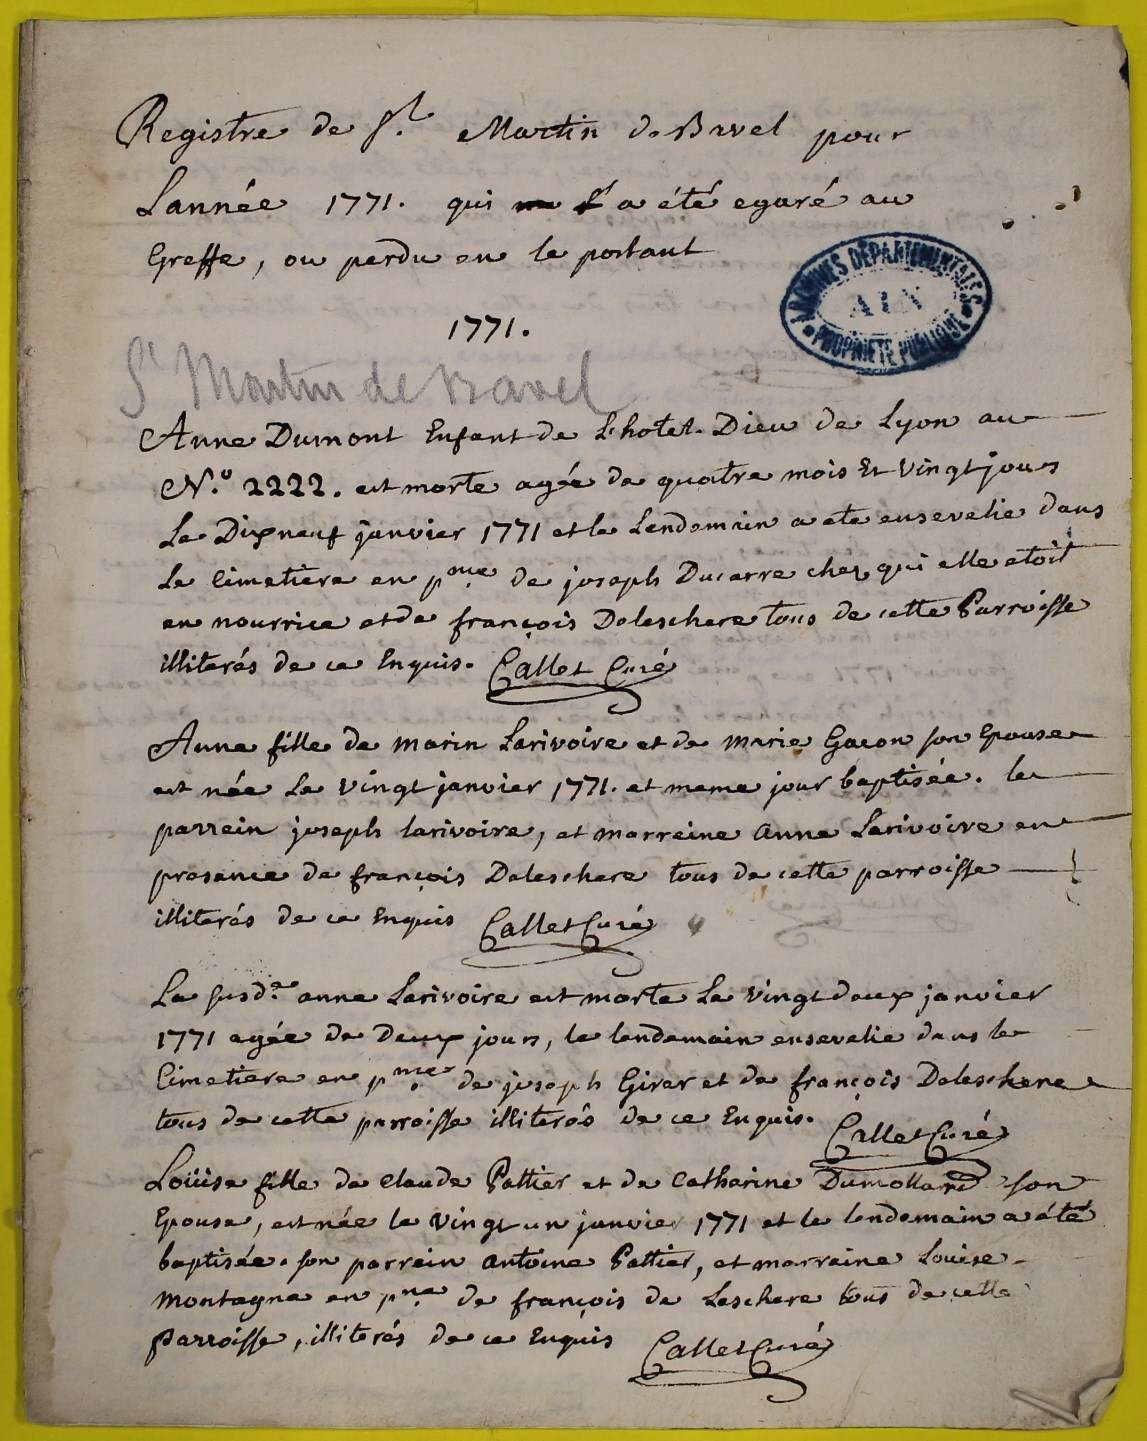 Registre de St. Martin de Bavel pour
Lannée 1771. qui a été egaré au
Greffe, ou perdu en le portant
ARCHIVES DÉPARTEMENTALES
AIN
PROPRIÉTÉ PUBLIQUE
1771.
St Martin de Bavel
Anne Dumont Enfant de L'hotel-Dieu de Lyon au
N.o 2222. est morte agée de quatre mois Et vingt jours
Le Dixneuf janvier 1771 et le Lendemain a ete ensevelie dans
Le Cimetiere en pnce de joseph Ducarre chez qui elle etoit
en nourrice et de françois Deleschere tous de cette Parroisse
illiterés de ce Enquis. Callet Curé
Anne fille de marin Larivoire et de marie Gacon son Epouse
est née Le vingt janvier 1771. et meme jour baptisée. le
parrein joseph larivoire, et marreine anne Larivoire en
presence de françois Deleschere tous de cette parroisse
illiterés de ce Enquis Callet Curé
La susd.e anne Larivoire est morte Le vingt deux janvier
1771 agée de Deux jours, le lendemain ensevelie dans le
Cimetiere en pnce de joseph Girer et de françois Deleschere
tous de cette parroisse illiterés de ce Enquis. Callet Curé
Loüise fille de Claude Pattier et de Catharine Dumollard son
Epouse, est née le vingt un janvier 1771 et le lendemain a été
baptisée. son parrein antoine Pattier, et marraine Louise
montagne en pnce de françois de Leschere tous de cette
Parroisse, illiterés de ce Enquis Callet Curé